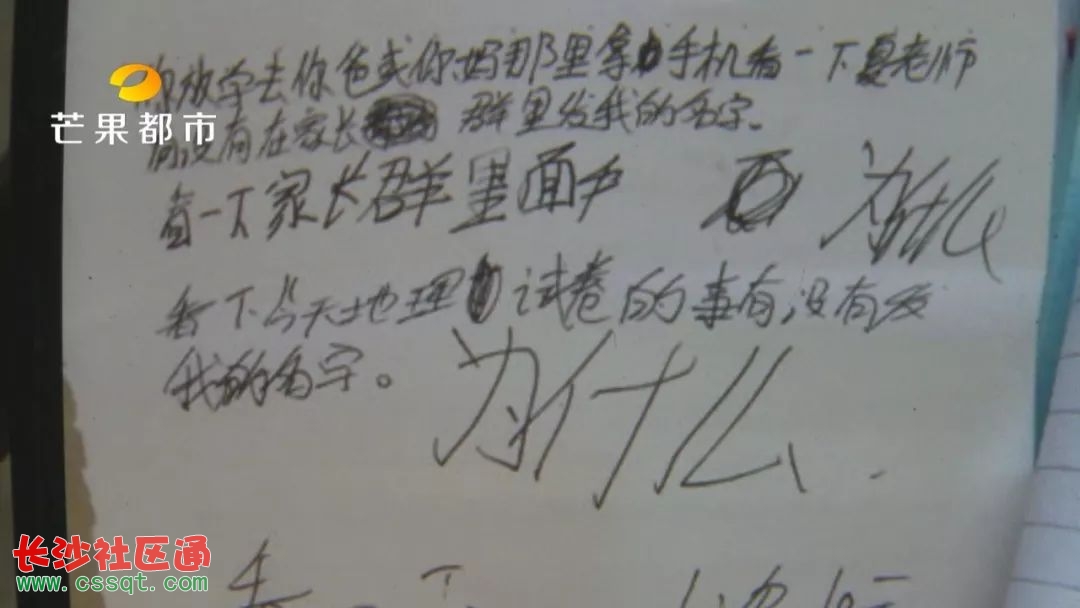 你放学去你爸或你妈那里拿手机看一下夏老师
芒果都市
有没有在家长群里发我的名字。
看一下家长群里面
为什么
看下今天地理试卷的事有没有发
我的名字。
为什么
长沙社区通
www.cssqt.com